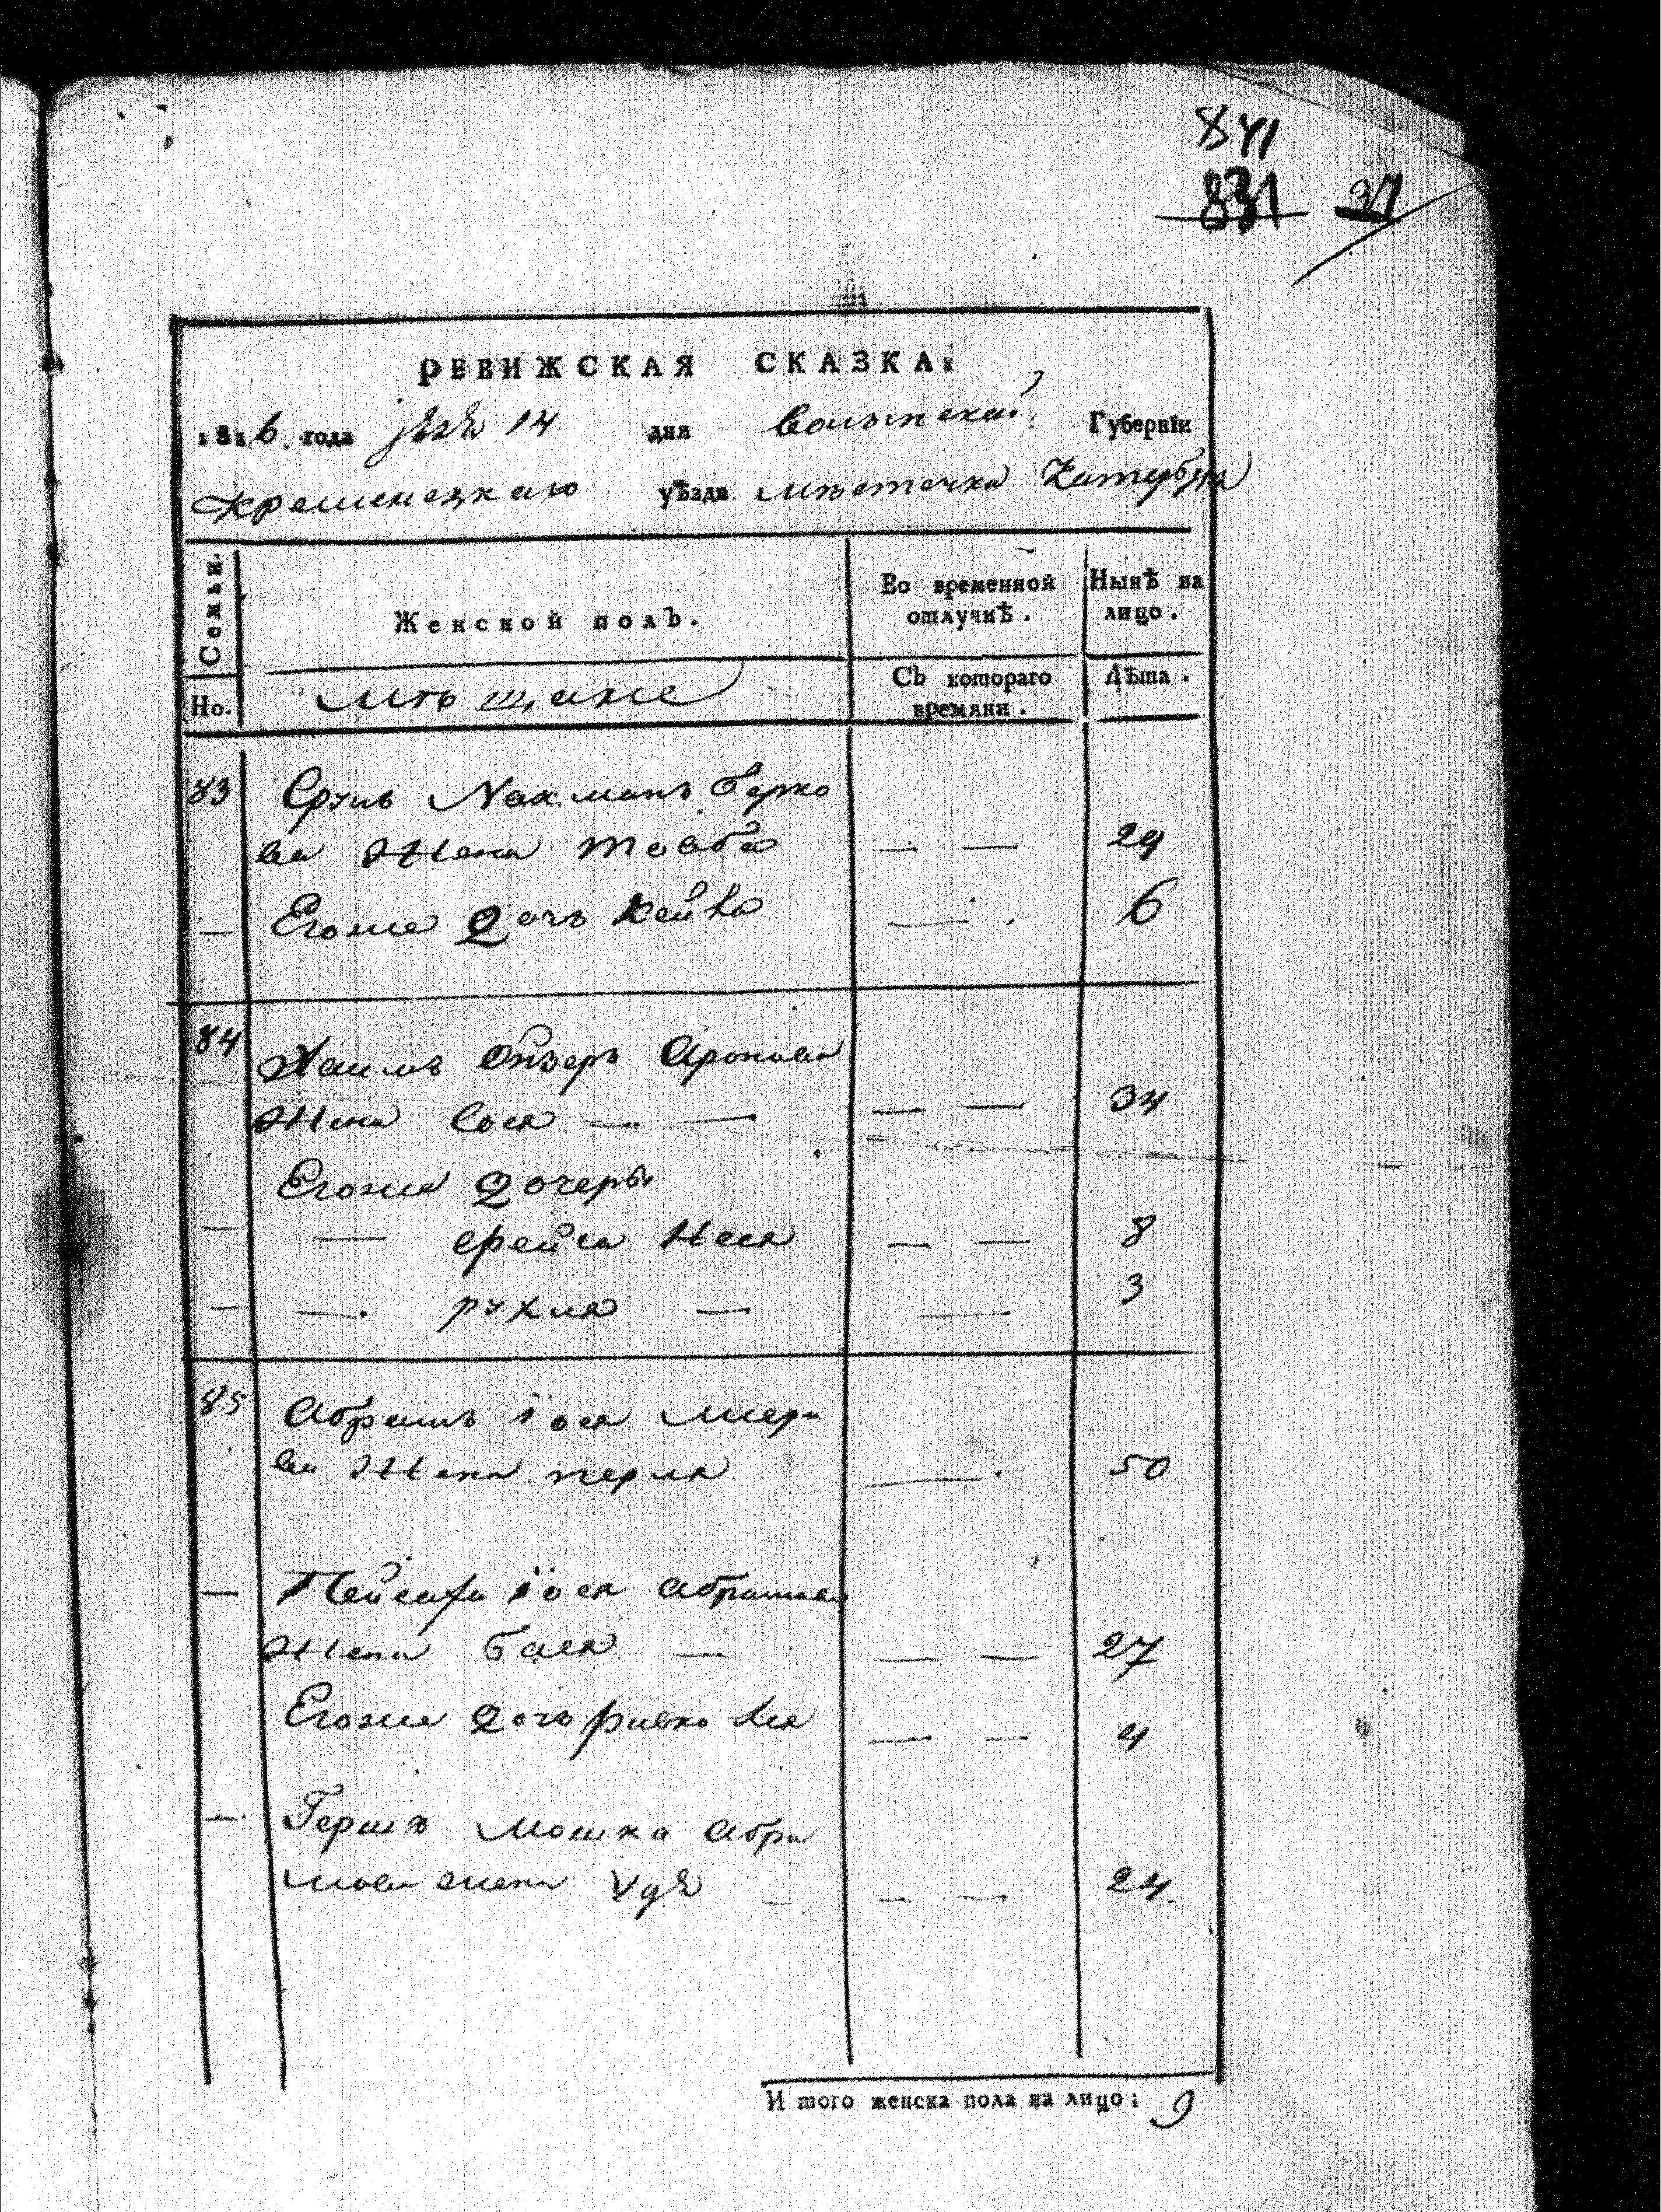 841
831 37
РЕВИЖСКАЯ СКАЗКА.
1816 года 14 дня Волынской Губерніи
Кременецкаго уѣзда мѣстечка Катербурга
Семьи. Женской полъ. Во временной отлучкѣ. Нынѣ на лицо.
Но. мѣщане Съ котораго времяни. Лѣта.
83 Сруль Нахманъ Берко
ва Жена Тоаба — — 29
— Егоже Дочь Хейва — 6
84 Хаимъ Ойзеръ Аронова
Жена Сося — — — — 34
Егоже Дочеры
— — Фейга Неся — — 8
— — рухля — — 3
85 Абрамъ Іося Мееро
ва Жена перля — 50
— Пейсаха Іося Абрамова
Жена Бася — — — 27
Егоже Дочь ривко Лея — — 4
— Гершъ Мошка Абра
мова жена Удя — — — 24
И того женска пола на лицо: 9